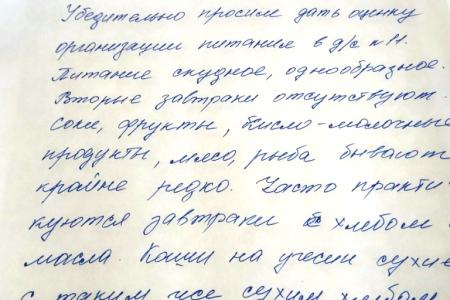 Убедительно просим дать оценку
организации питания в д/с № 11.
Питание скудное, однообразное.
Вторые завтраки отсутствуют.
Соки, фрукты, кисло-молочные
продукты, мясо, рыба бывают
крайне редко. Часто практи-
куются завтраки с хлебом
масла. Каши на ужин сухие
с таким же сухим хлебом